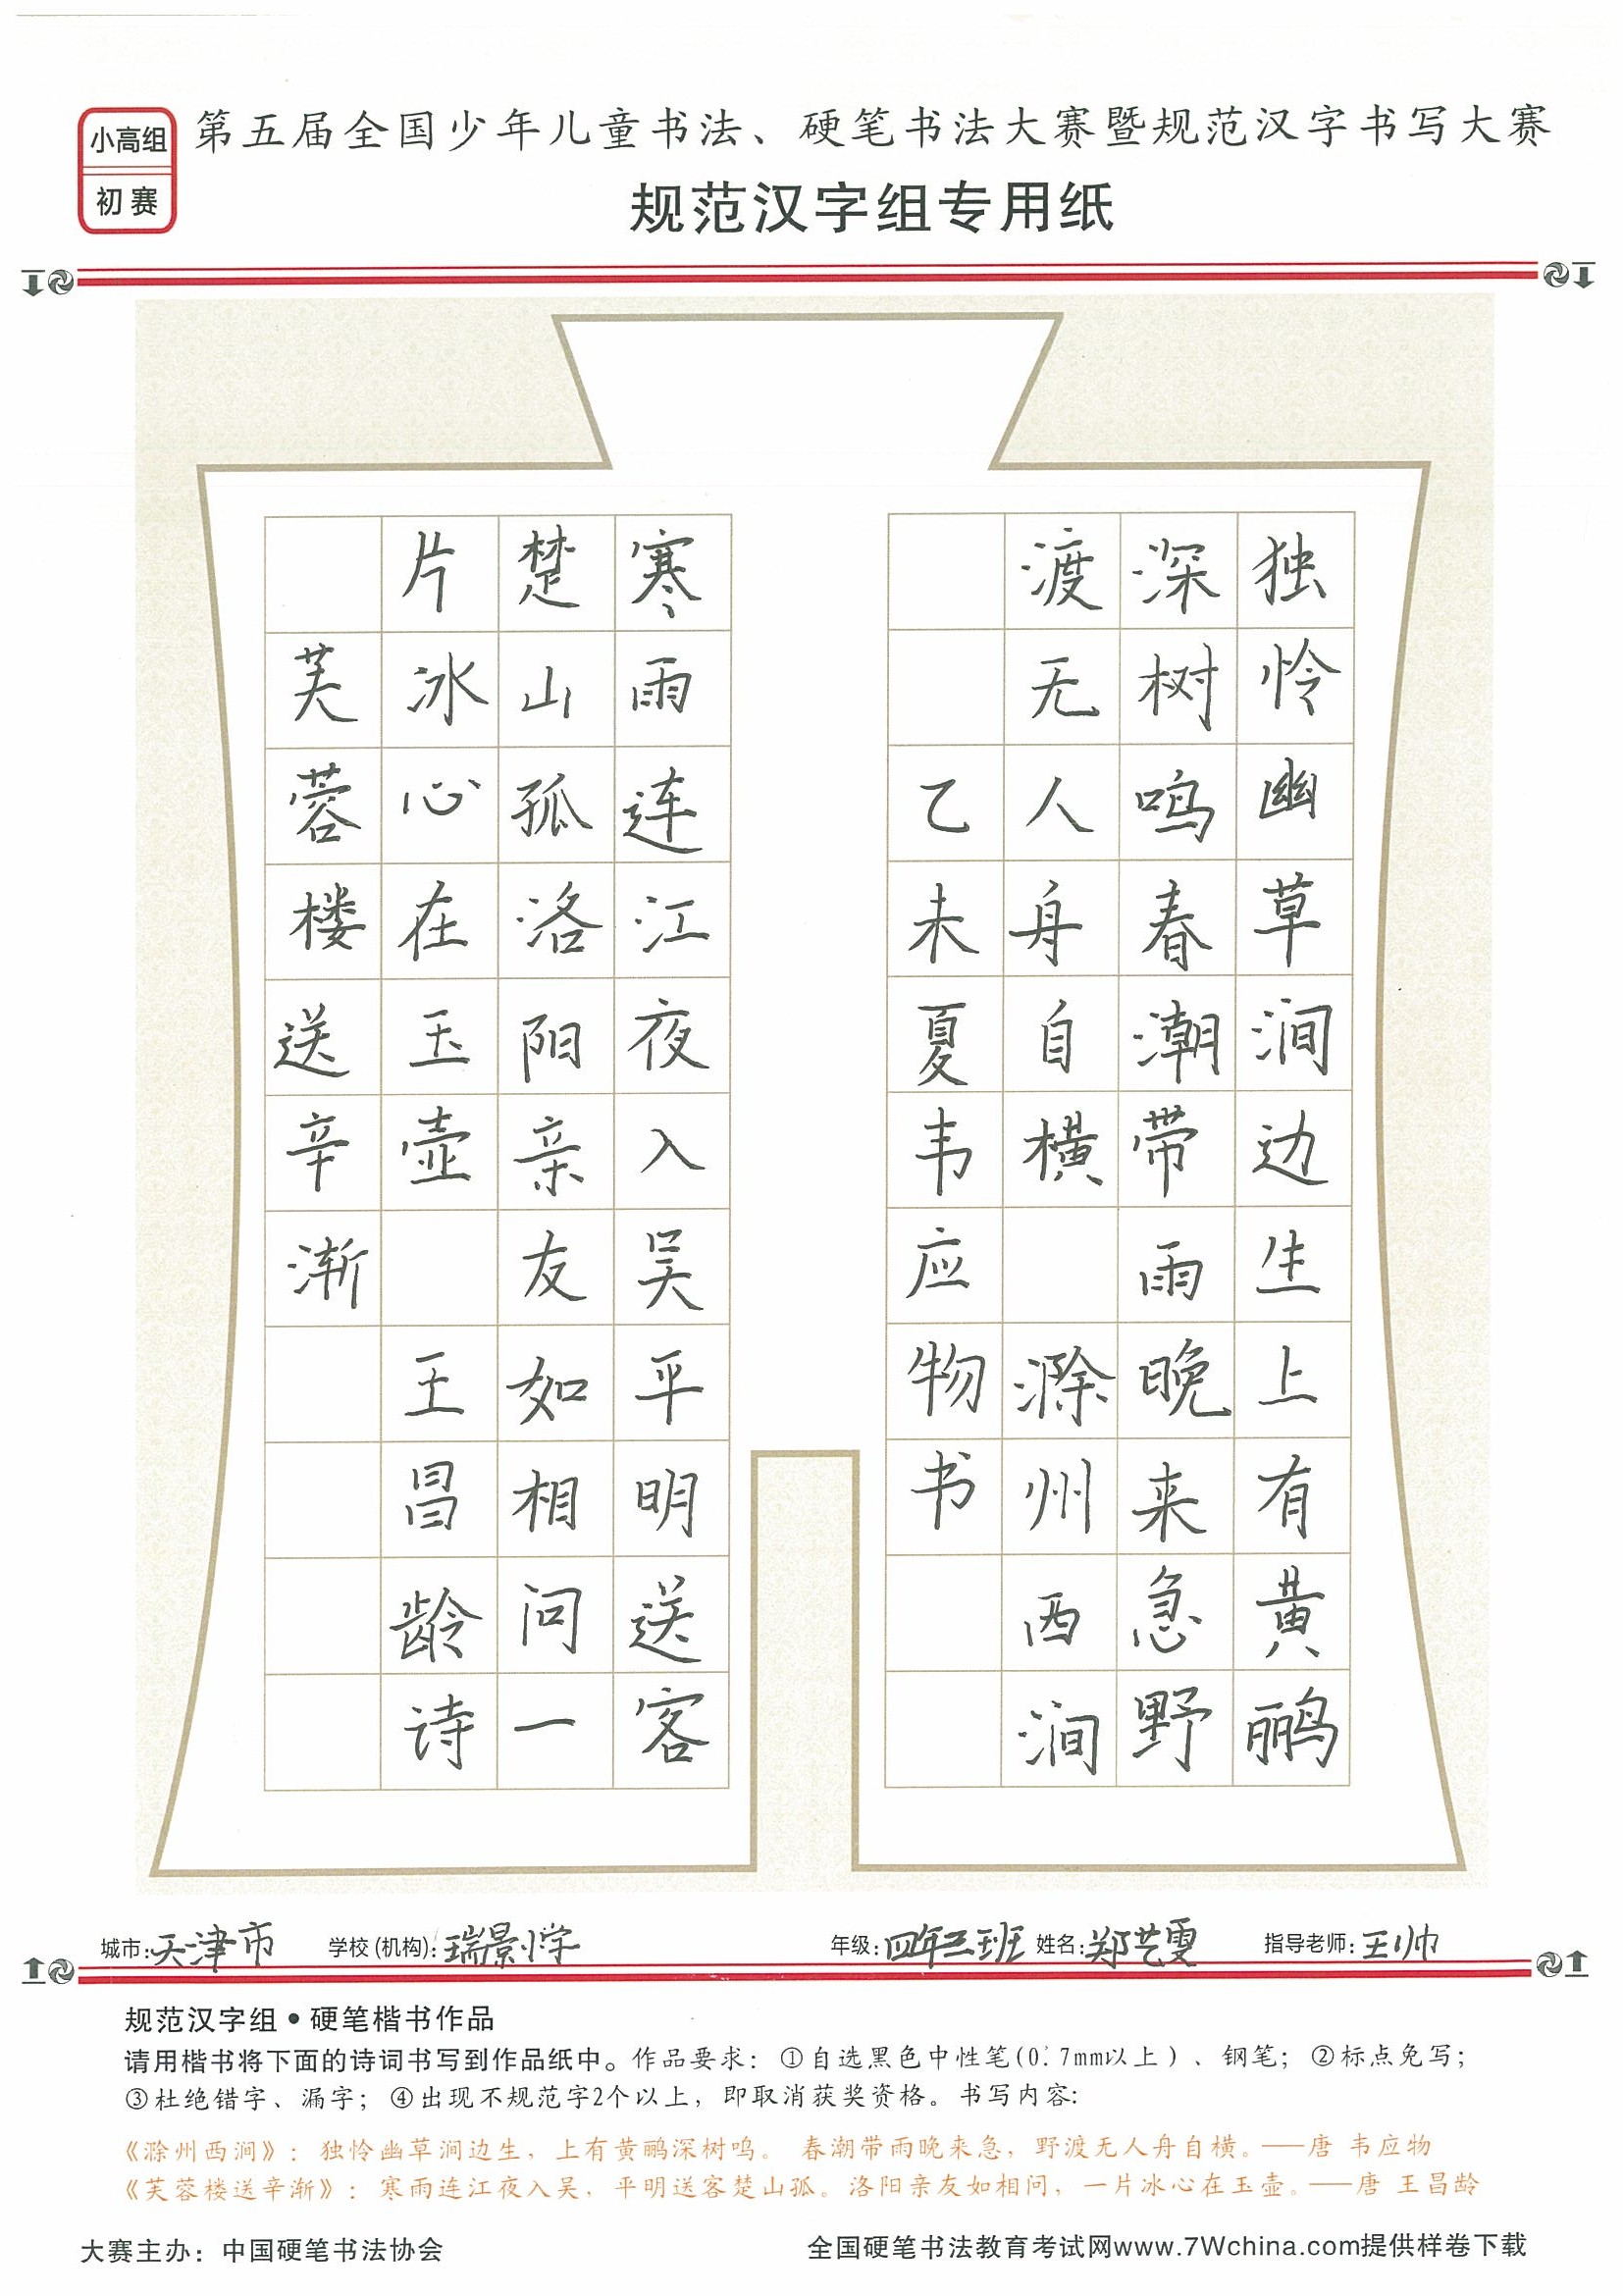 小高组
初赛
第五届全国少年儿童书法、硬笔书法大赛暨规范汉字书写大赛
规范汉字组专用纸
独怜幽草涧边生上有黄鹂
深树鸣春潮带雨晚来急野
渡无人舟自横 滁州西涧
乙未夏韦应物书
寒雨连江夜入吴平明送客
楚山孤洛阳亲友如相问一
片冰心在玉壶 王昌龄诗
芙蓉楼送辛渐
城市:天津市 学校(机构):瑞景小学 年级:四年三班 姓名:郑艺雯 指导老师:王帅
规范汉字组•硬笔楷书作品
请用楷书将下面的诗词书写到作品纸中。作品要求：①自选黑色中性笔(0.7mm以上)、钢笔；②标点免写；
③杜绝错字、漏字；④出现不规范字2个以上，即取消获奖资格。书写内容:
《滁州西涧》：独怜幽草涧边生，上有黄鹂深树鸣。 春潮带雨晚来急，野渡无人舟自横。——唐 韦应物
《芙蓉楼送辛渐》：寒雨连江夜入吴，平明送客楚山孤。洛阳亲友如相问，一片冰心在玉壶。——唐 王昌龄
大赛主办：中国硬笔书法协会
全国硬笔书法教育考试网www.7Wchina.com提供样卷下载